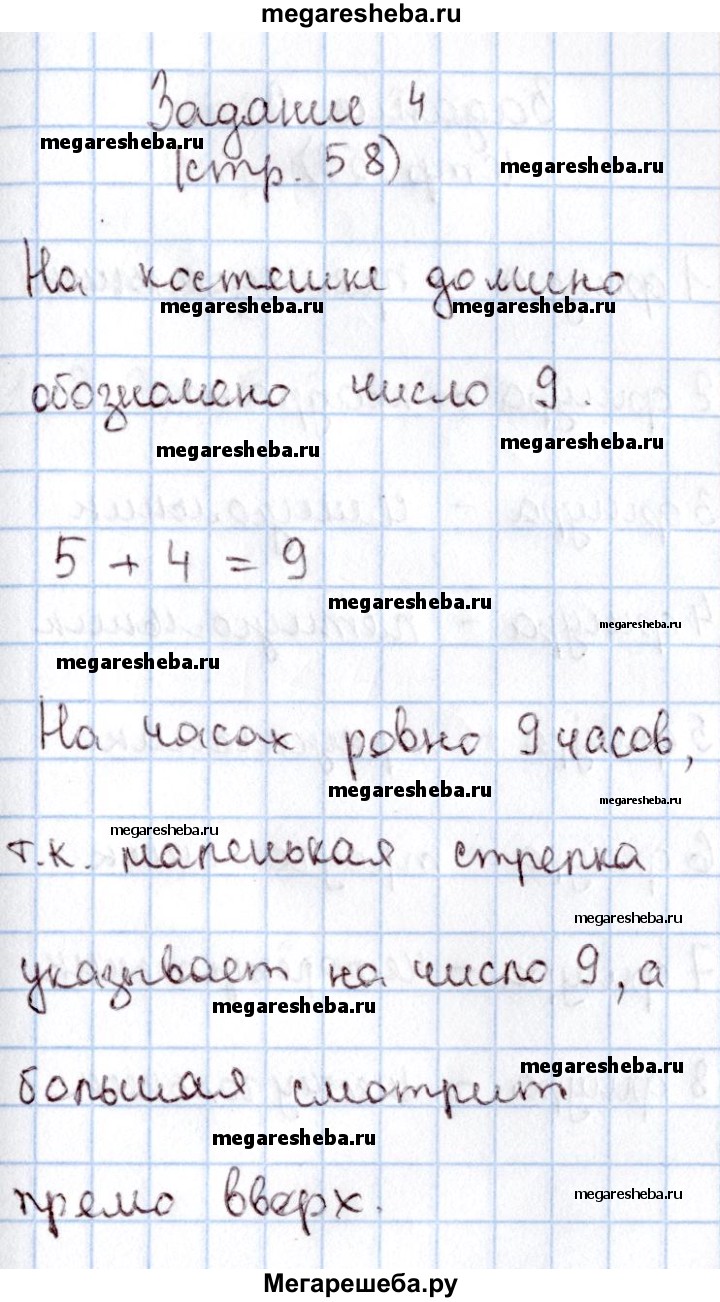 megaresheba.ru
Задание 4
megaresheba.ru
(стр. 58)
megaresheba.ru
На костяшке домино
megaresheba.ru megaresheba.ru
обозначено число 9.
megaresheba.ru megaresheba.ru
5 + 4 = 9
megaresheba.ru
megaresheba.ru
megaresheba.ru
На часах ровно 9 часов,
megaresheba.ru megaresheba.ru
megaresheba.ru
т.к. маленькая стрелка
megaresheba.ru
указывает на число 9, а
megaresheba.ru
megaresheba.ru
большая смотрит
megaresheba.ru
прямо вверх.
megaresheba.ru
Мегарешеба.ру